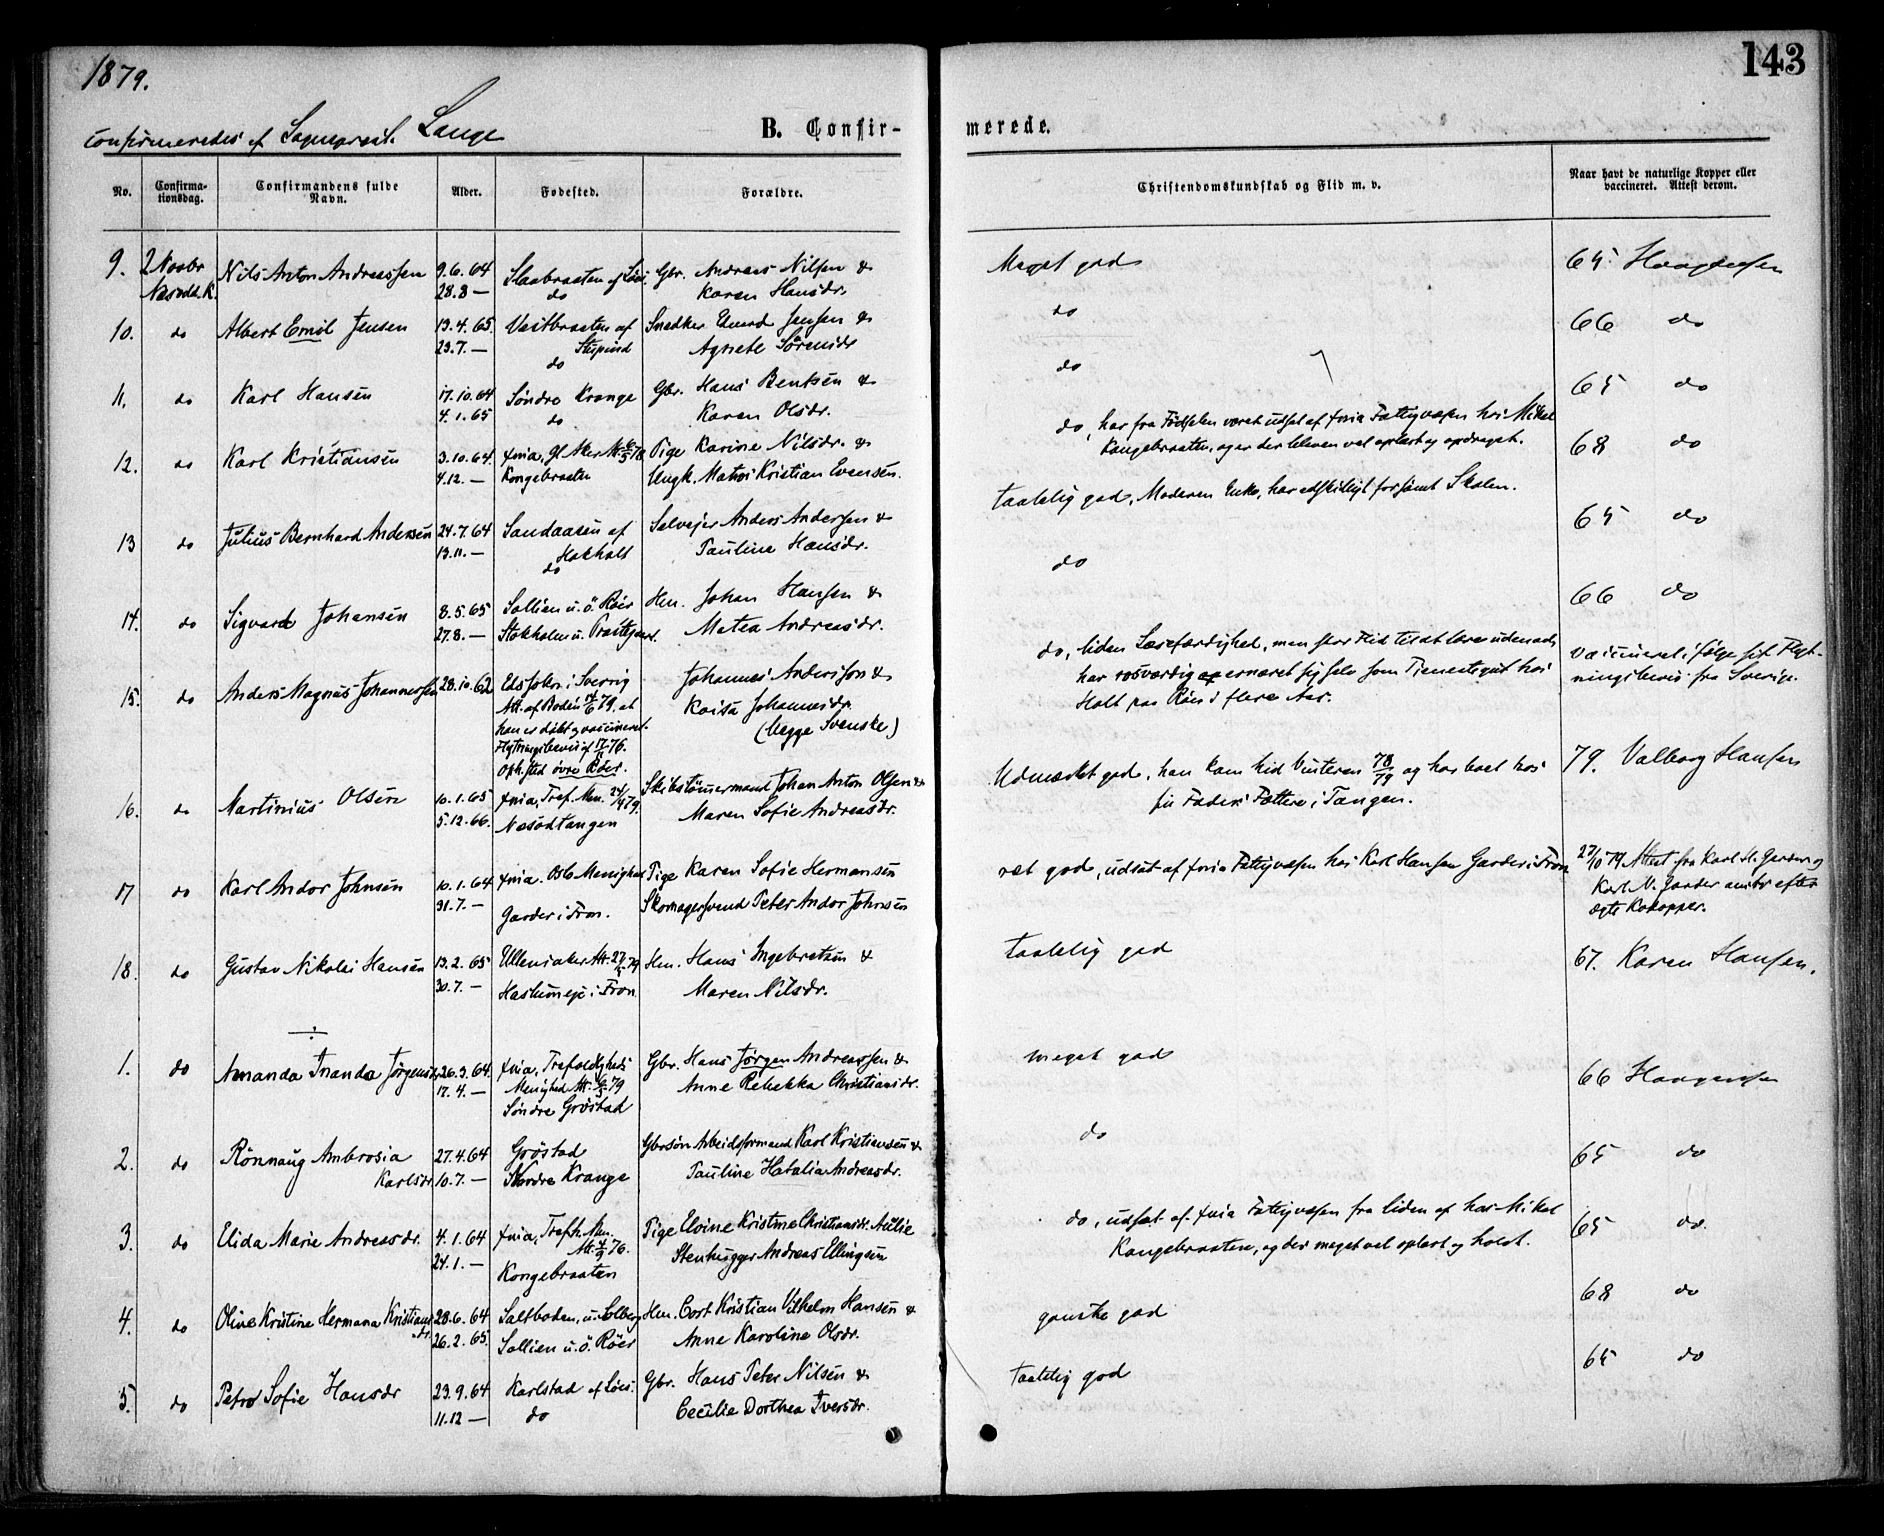 1879.
143
Confirmeredes af Sognepræst. Lange
B. Confir-
merede.
No.
Confirma-
tionsdag.
Confirmandens fulde
Navn.
Alder.
Fødested.
Forældre.
Christendomskundskab og Flid m. v.
Naar havt de naturlige Kopper eller
vaccineret. Attest derom.
9. 2 Novbr Nils Anton Andreassen 9.6.64 Slaabraaten af Gbr. Andreas Nilsen & Meget god 65
Næsodd. K. 28.8 — do Karen Hansdr.
10. do Albert Emil Jensen 13.4.65. Veitbraaten af Snedker Edvard Jensen & do 66 do
23.7. — do Agnete Sørensdr
11. do Karl Hansen 17.10.64 Søndre Krange Gbr. Hans Bentsen & do 65 do
4.1.65 do Karen Olsdr.
12. do Karl Kristiansen 3.10.64. Xnia, Gl. Aker Pige Karine Nilsdr. & do, har fra Fødselen været udsat af Xnia Fattigvæsen hos Mikal 68 do
4.12. — Kongebraaten Ungk. Matros Kristian Evensen. Kongebraaten, og er der bleven vel oplært og opdraget.
13 do Julius Bernhard Andersen 24.7.64 Sandaasen af Selvejer Anders Andersen & taalelig god, Moderen Enke, har forsømt Skolen. 65 do
13.11. — Hokholt Pauline Hansdr.
do
14. do Sigvard Johansen 8.5.65 Sollien u. ö. Röer Hm. Johan Hansen & do 66 do
27.8. — Stokholm u. Præstegaard. Matea Andreasdr.
15. do Anders Magnus Johannessen 28.10.62 Eds Sokn i Sverrig Johannes Andersson & do, liden Læsefærdighed, men stor Flid til at lære udenad, vaccineret ifølge sit Flyt-
Att. af Boden 79, at Kaisa Johannesdr. har rosværdig ernæret sig selv som Tjenestegut hos ningsbevis fra Sverige.
han er døbt og vaccineret. (begge Svenske) Holt paa Röer i flere Aar.
Flytningsbevis af 17/11 76.
Oph.sted övre Röer.
16. do Martinius Olsen 10.1.65 Xnia, Tref. Men. 79. Skibstömmermand Johan Anton Olsen & Udmærket god, han kom hid Vinteren 78/79 og har boet hos 79. Valborg Hansen
5.12.66. Næsodtangen Maren Sofie Andreasdr. sin Faders Fættere i Tangen.
17 do Karl Andor Johnsen 10.1.64 Xnia. Oslo Menighed Pige Karen Sofie Hermansen ret god, udsat af Xnia Fattigvæsen hos Karl Hansen Garder i Fron 27/10 79 Attest fra Karl H. Garder og
31.7. — Garder i Fron. Skomagersvend Peter Andor Johnsen Karl N. Garder efter
ægte Kokopper.
18. do Gustav Nikolai Hansen 13.2.65 Ullensaker Att. 79 Hm. Hans Ingebretsen & taalelig god 67. Karen Hansen.
30.7. — i Fron. Maren Nilsdr.
1. do Amanda Inanda Jörgensdr 26.3.64 Xnia, Trefoldigheds Gbr. Hans Jörgen Andreassen & meget god 66
17.4. — Menighed Att. 79 Anne Rebekka Christiansdr.
Söndre Gröstad
2. do Rönnaug Ambrosia 27.4.64 Gröstad Gbrsøn Arbeidsformand Karl Kristiansen & do 65 do
Karlsdr. 10.7. — Nordre Krange Pauline Hatalia Andreasdr.
3. do Elida Marie Andreasdr. 4.1.64 Xnia, Trefh. Men. Pige Elvine Kristine Christiansdr. do, udsat af Xnia Fattigvæsen fra liden af hos Mikal 65 do.
24.1. — Att. 76. Stenhugger Andreas Ellingsen Kongebraaten, og der meget vel oplært og holdt.
Kongebraaten
4. do Oline Kristine Hermana Kristians- 28.6.64 Saltboden, u. Solberg Hm. Cort Kristian Vilhelm Hansen & ganske god 68 do
dr. 26.2.65. Sollien u. ö. Röer Anne Karoline Olsdr.
5. do Petra Sofie Hansdr 23.9.64 Karlstad af Gbr. Hans Peter Nilsen & taalelig god 65 do
11.12 — do Cecilie Dorthea Iversdr.